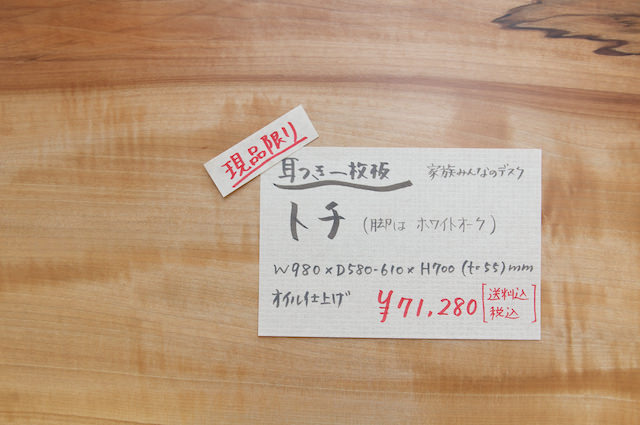 現品限り
耳つき一枚板 家族みんなのデスク
トチ (脚は ホワイトオーク)
W980×D580-610×H700(t=55)mm
オイル仕上げ ¥71,280 [送料込 税込]